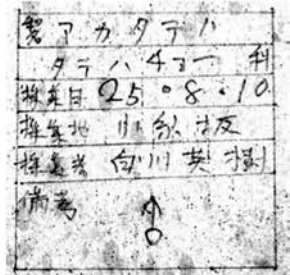 アカタテハ
タテハチョー科
採集日 25.8.10.
採集地 小糸坂
採集者 白川英樹
備考